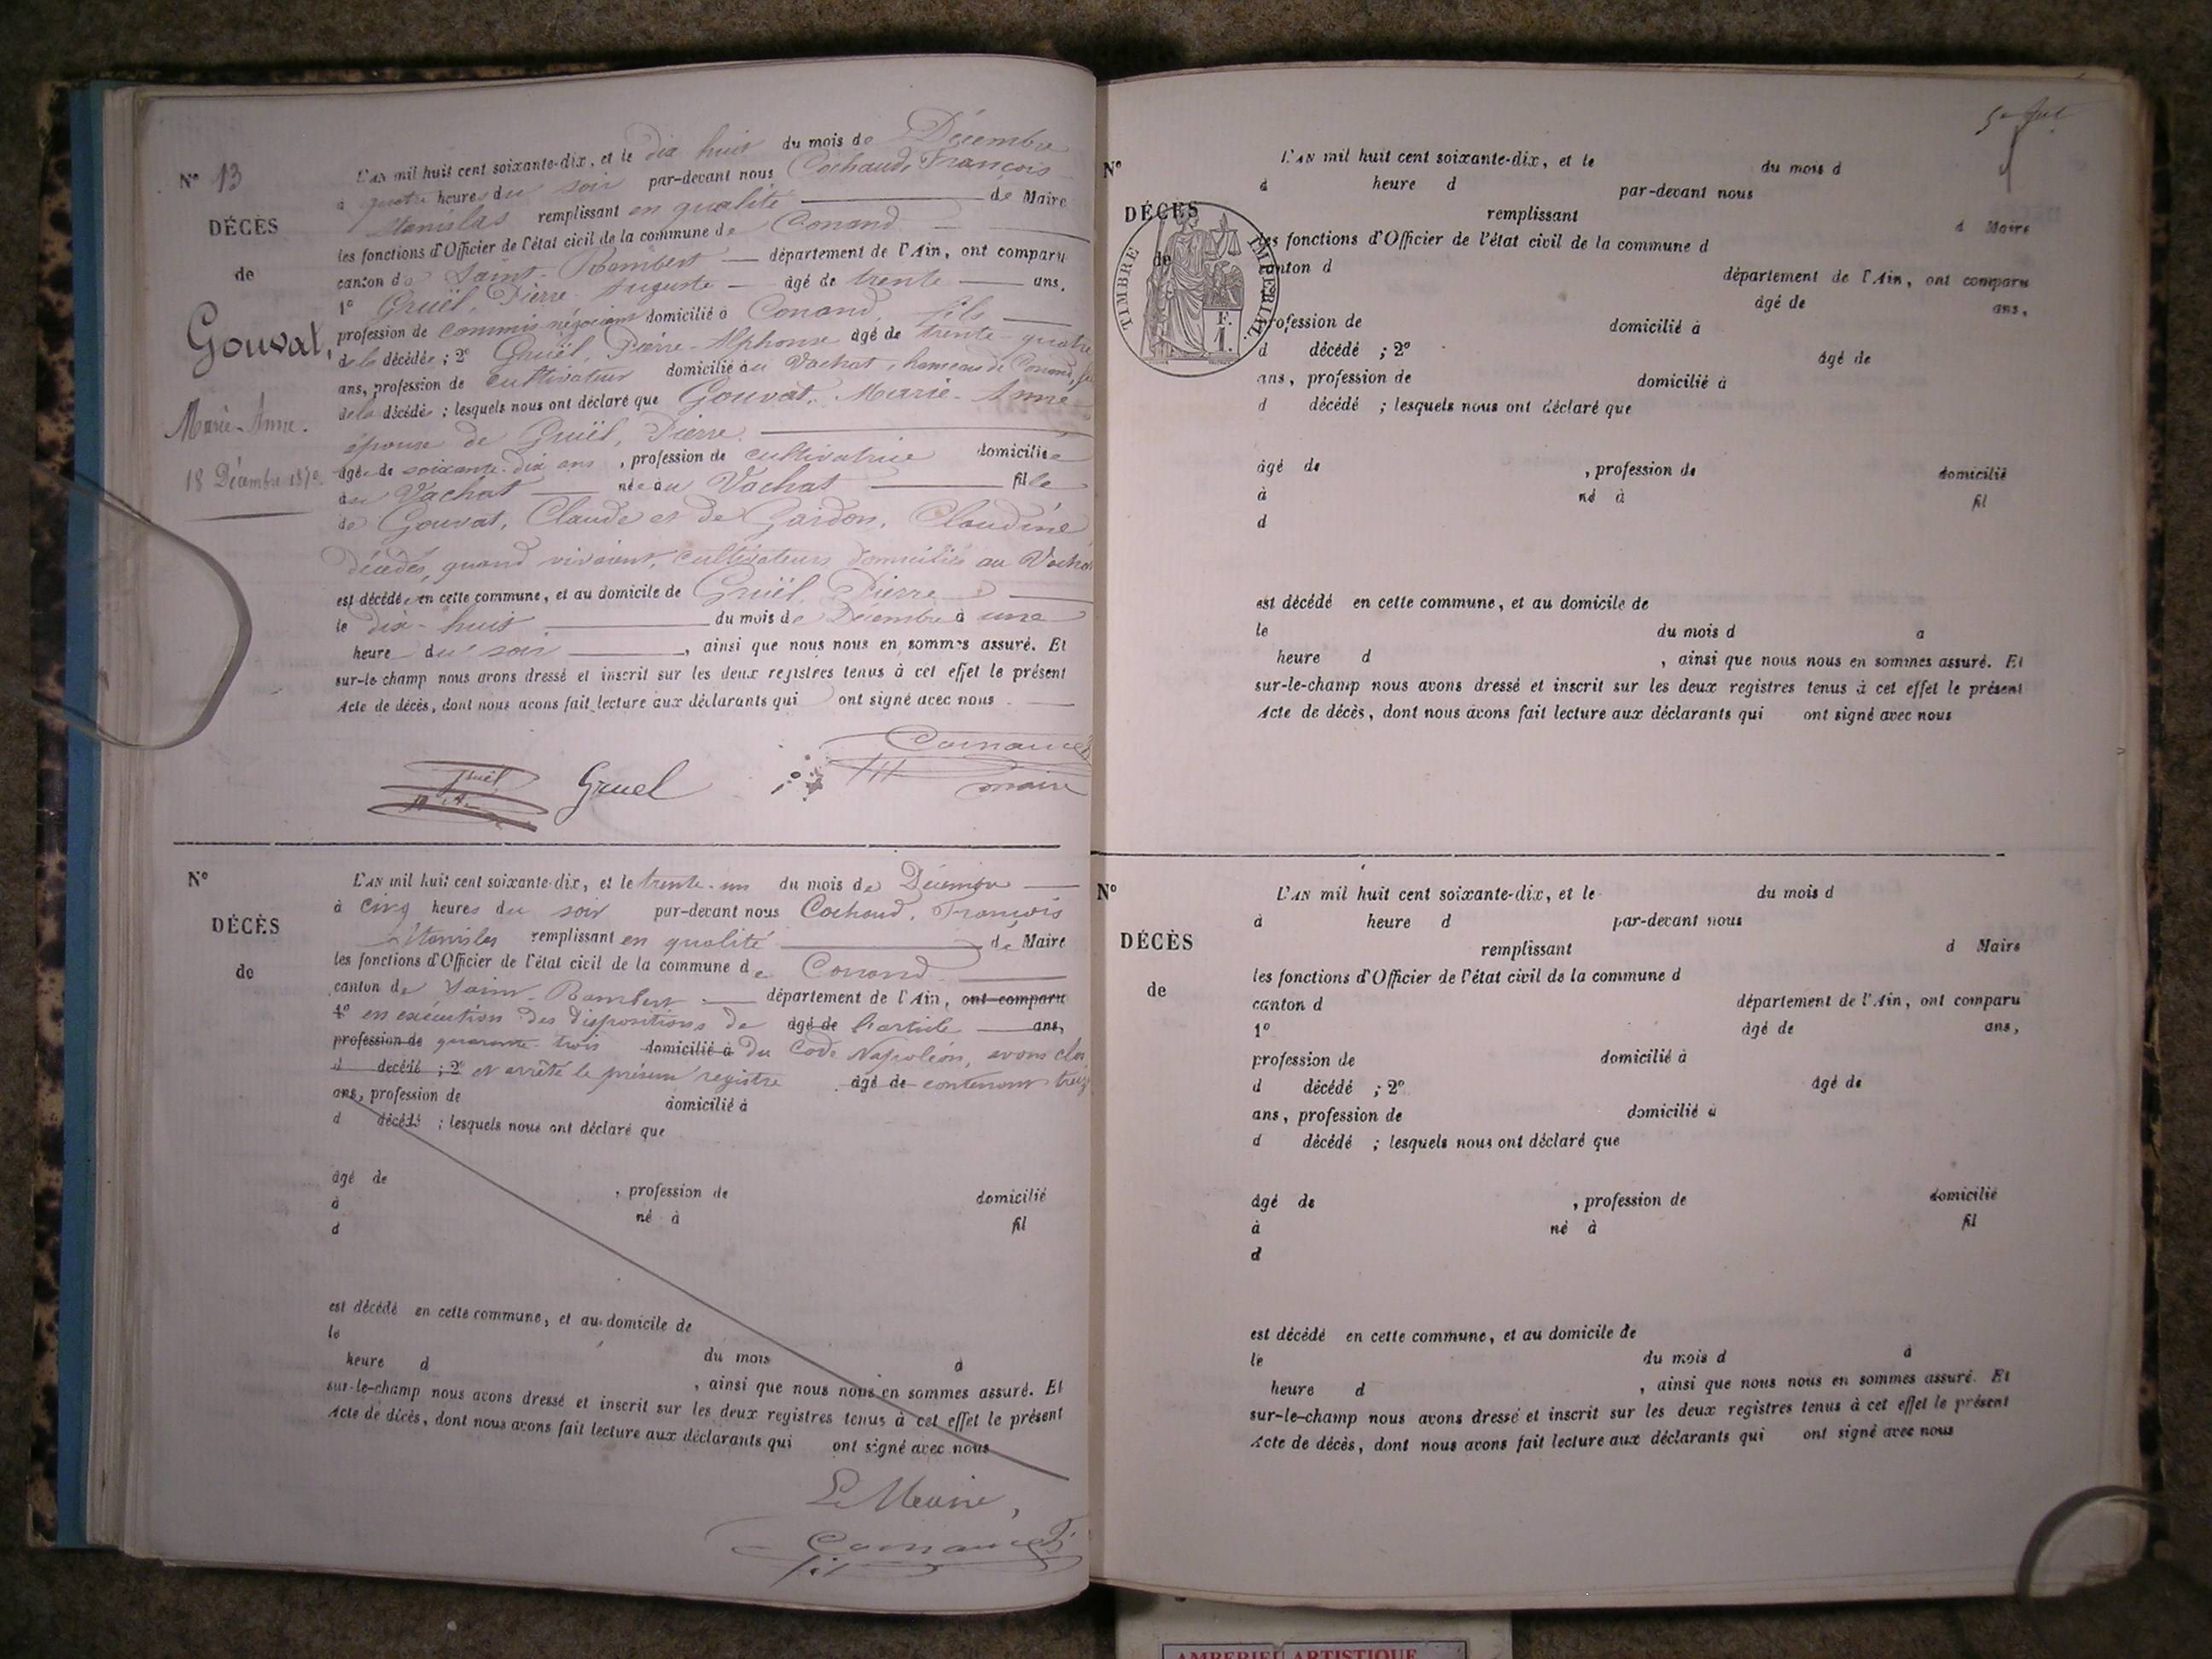 N° 13
DÉCÈS
de
Gouvat,
Marie-Anne.
18 Décembre 1870
L'AN mil huit cent soixante-dix, et le dix huit du mois de Décembre
à quatre heures du soir par-devant nous Cochaud, François
Stanislas remplissant en qualité de Maire
les fonctions d'Officier de l'état civil de la commune de Conand
canton de Saint-Rambert département de l'Ain, ont comparu
1° Gruël, Pierre Auguste âgé de trente ans,
profession de commis-négociant domicilié à Conand, fils
de la décédée ; 2° Gruël, Pierre-Alphonse âgé de trente-quatre
ans, profession de cultivateur domicilié au Vachat, hameau de Conand,
de la décédée ; lesquels nous ont déclaré que Gouvat, Marie-Anne
épouse de Gruël, Pierre.
âgée de soixante-dix ans, profession de cultivatrice domiciliée
au Vachat née au Vachat fille
de Gouvat, Claude et de Gardon, Claudine
décédés, quand vivaient, cultivateurs domiciliés au Vachat
est décédée en cette commune, et au domicile de Gruël, Pierre
le dix-huit du mois de Décembre à une
heure du soir, ainsi que nous nous en sommes assuré. Et
sur-le-champ nous avons dressé et inscrit sur les deux registres tenus à cet effet le présent
Acte de décès, dont nous avons fait lecture aux déclarants qui ont signé avec nous
Gruël
Gruel
maire
N°
DÉCÈS
de
L'AN mil huit cent soixante-dix, et le trente-un du mois de Décembre
à cinq heures du soir par-devant nous Cochaud, François
Stanislas remplissant en qualité de Maire
les fonctions d'Officier de l'état civil de la commune de Conand
canton de Saint-Rambert département de l'Ain, ont comparu
1° en exécution des dispositions de âgé de l'article ans,
profession de quarante-trois domicilié à du Code Napoléon, avons clos
d décédé ; 2° et arrêté le présent registre âgé de contenant treize
ans, profession de domicilié à
d décédé ; lesquels nous ont déclaré que
âgé de , profession de domicilié
à né à fil
d
est décédé en cette commune, et au domicile de
le du mois à
heure d , ainsi que nous nous en sommes assuré. Et
sur-le-champ nous avons dressé et inscrit sur les deux registres tenus à cet effet le présent
Acte de décès, dont nous avons fait lecture aux déclarants qui ont signé avec nous
Le Maire,
N°
DÉCÈS
de
TIMBRE IMPÉRIAL
F.
1.
L'AN mil huit cent soixante-dix, et le du mois d
à heure d par-devant nous
remplissant d Maire
les fonctions d'Officier de l'état civil de la commune d
canton d département de l'Ain, ont comparu
âgé de ans,
profession de domicilié à
d décédé ; 2° âgé de
ans, profession de domicilié à
d décédé ; lesquels nous ont déclaré que
âgé de , profession de domicilié
à né à fil
d
est décédé en cette commune, et au domicile de
le du mois d à
heure d , ainsi que nous nous en sommes assuré. Et
sur-le-champ nous avons dressé et inscrit sur les deux registres tenus à cet effet le présent
Acte de décès, dont nous avons fait lecture aux déclarants qui ont signé avec nous
N°
DÉCÈS
de
L'AN mil huit cent soixante-dix, et le du mois d
à heure d par-devant nous
remplissant d Maire
les fonctions d'Officier de l'état civil de la commune d
canton d département de l'Ain, ont comparu
1° âgé de ans,
profession de domicilié à
d décédé ; 2° âgé de
ans, profession de domicilié à
d décédé ; lesquels nous ont déclaré que
âgé de , profession de domicilié
à né à fil
d
est décédé en cette commune, et au domicile de
le du mois d à
heure d , ainsi que nous nous en sommes assuré. Et
sur-le-champ nous avons dressé et inscrit sur les deux registres tenus à cet effet le présent
Acte de décès, dont nous avons fait lecture aux déclarants qui ont signé avec nous
AMBERIEU ARTISTIQUE